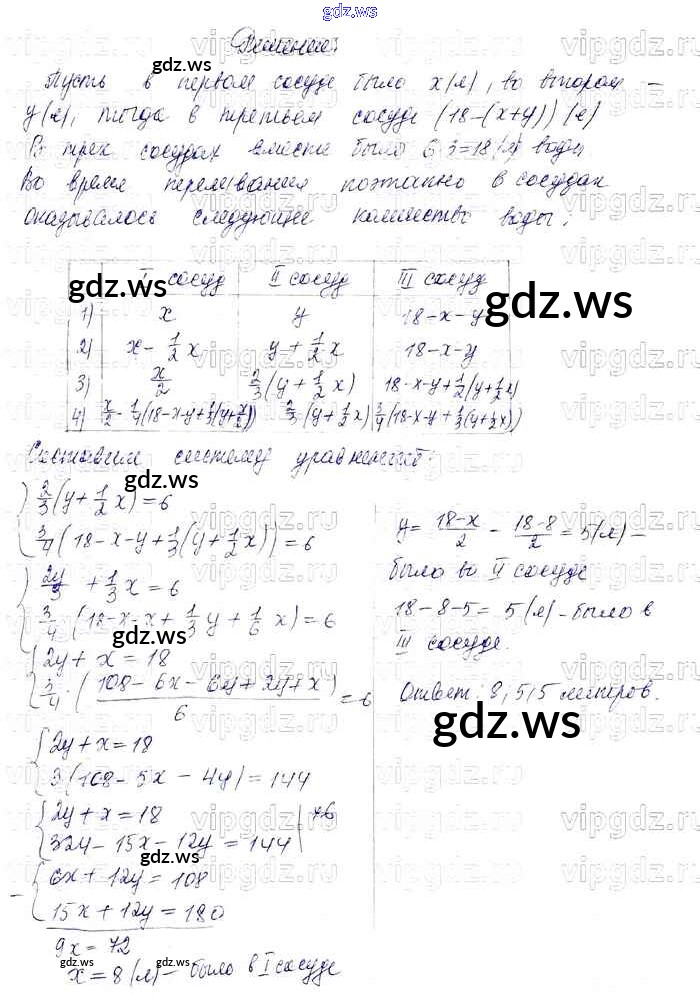 gdz.ws
Решение:
Пусть в первом сосуде было x(л), во втором –
y(л), тогда в третьем сосуде (18-(x+y)) (л)
В трех сосудах вместе было 6·3=18(л) воды
Во время переливания поэтапно в сосудах
оказывалось следующее количество воды:
I сосуд II сосуд III сосуд
1) x y 18-x-y
2) x-1/2x y+1/2x 18-x-y
3) x/2 2/3(y+1/2x) 18-x-y+1/2(y+1/2x)
4) x/2-1/4(18-x-y+1/3(y+x/2)) 2/3(y+1/2x) 3/4(18-x-y+1/3(y+1/2x))
Составим систему уравнений:
2/3(y+1/2x)=6
3/4(18-x-y+1/3(y+1/2x))=6
2y/3+1/3x=6
3/4(18-x-x+1/3y+1/6x)=6
2y+x=18
3/4·(108-6x-6y+2y+x)/6=6
2y+x=18
3(108-5x-4y)=144
2y+x=18 |·6
324-15x-12y=144
6x+12y=108
15x+12y=180
9x=72
x=8(л)- было в I сосуде
y=(18-x)/2-(18-8)/2=5(л)-
было во II сосуде
18-8-5=5(л)-было в
III сосуде.
Ответ: 8,5,5 литров.
gdz.ws
gdz.ws
gdz.ws
gdz.ws
gdz.ws
gdz.ws
gdz.ws
gdz.ws
vipgdz.ru